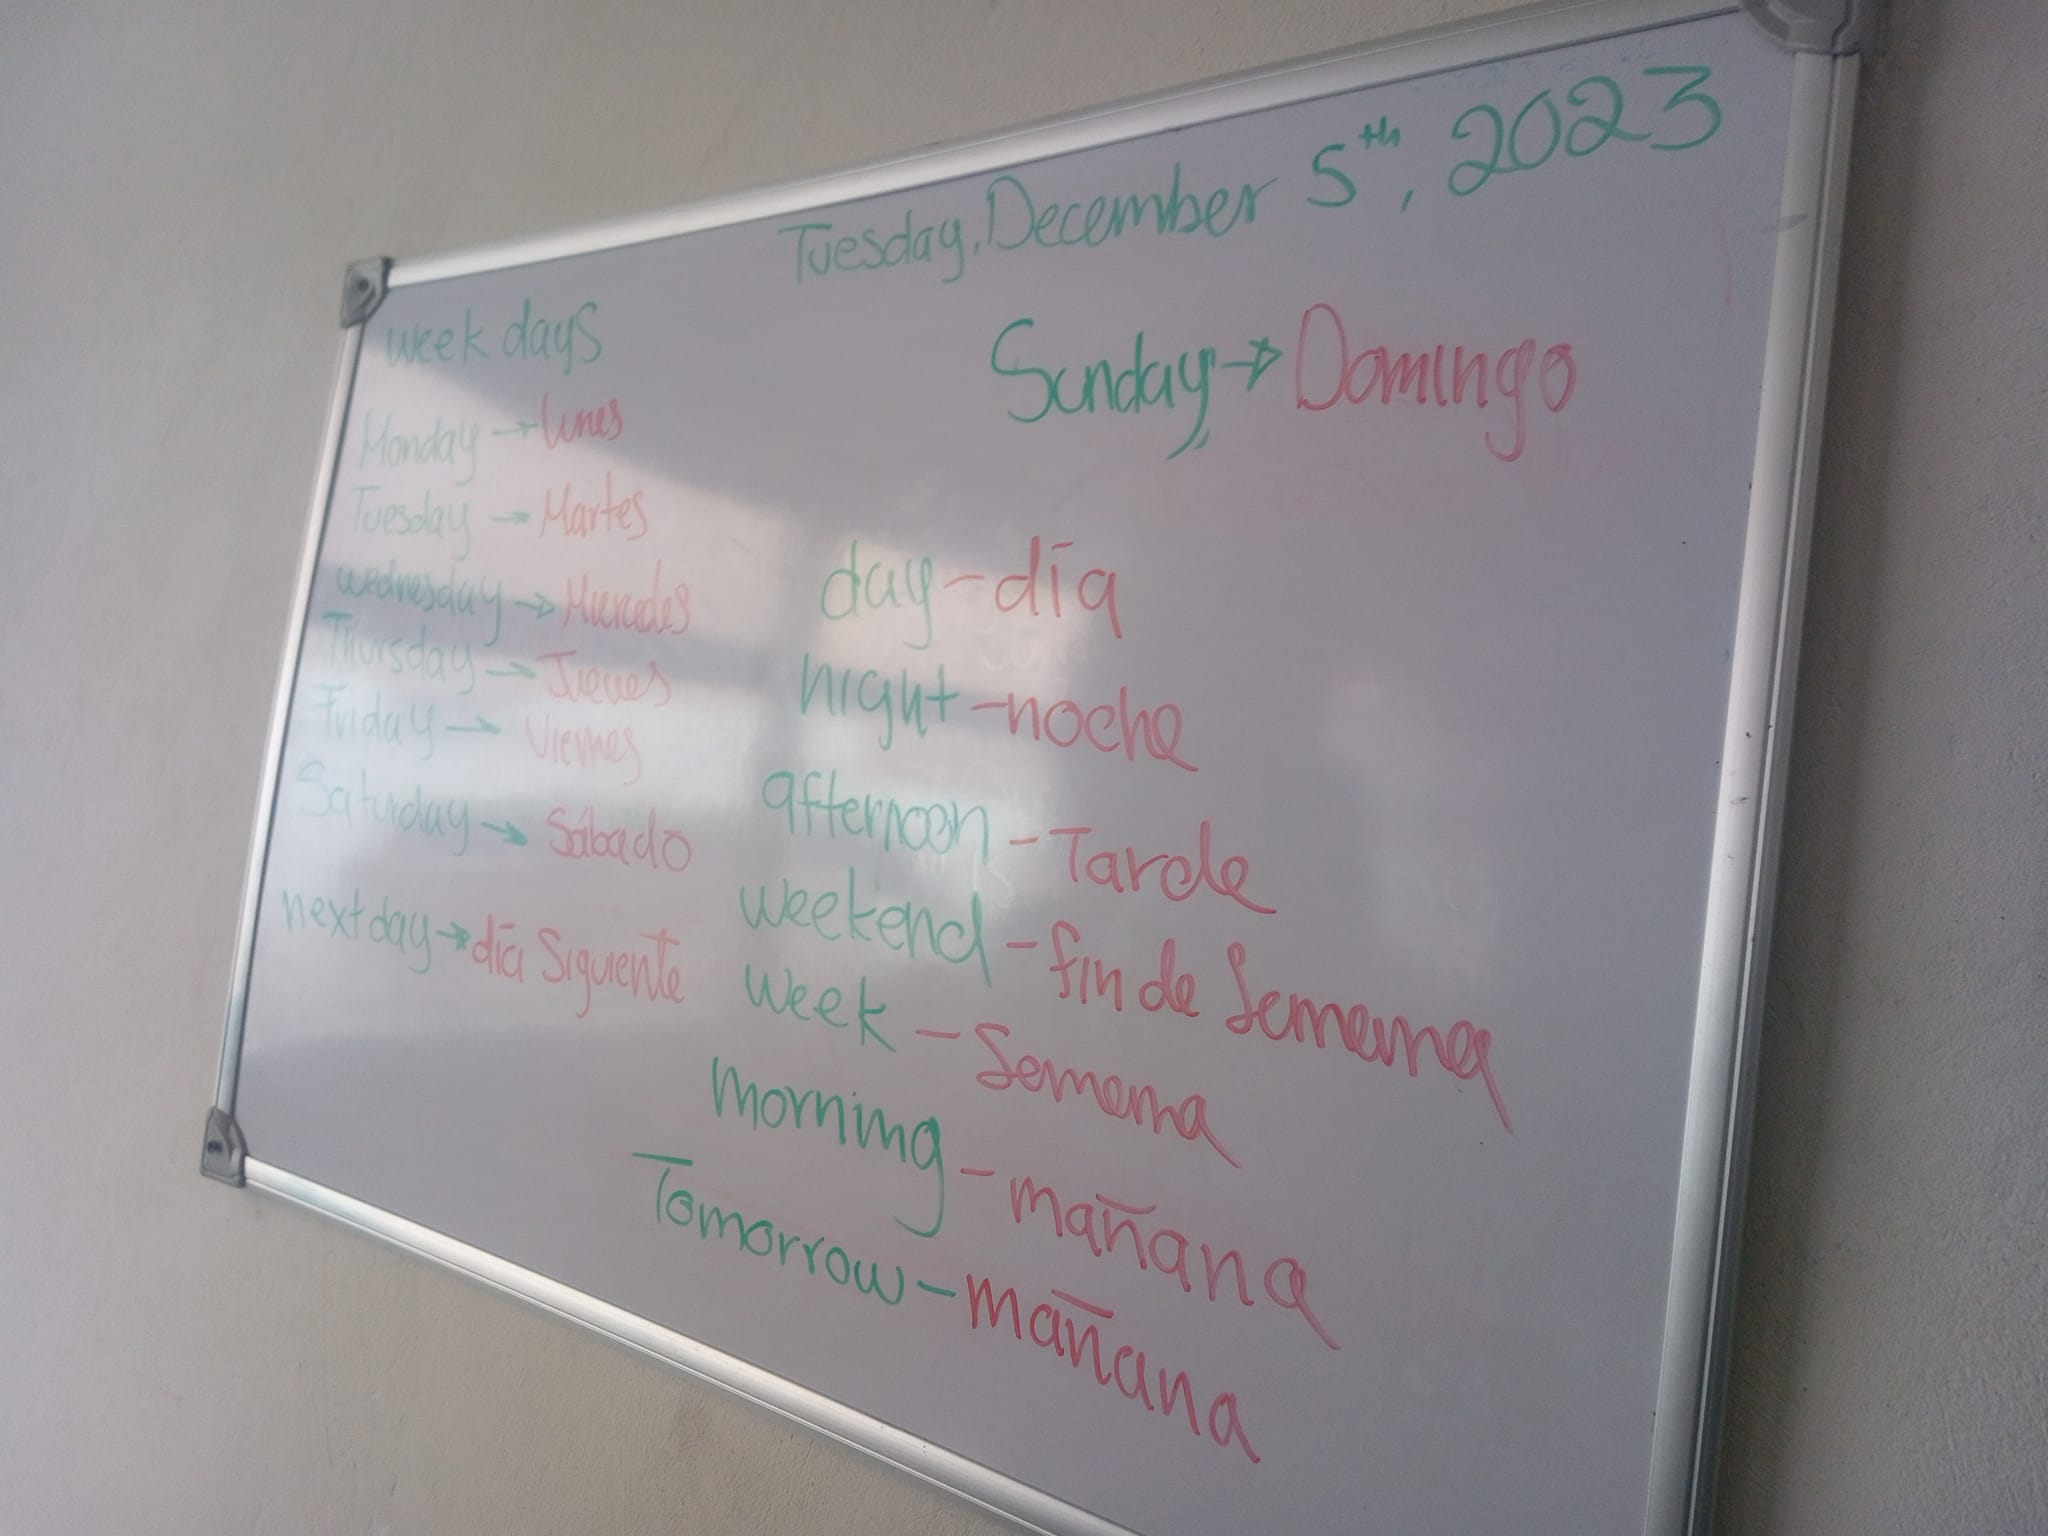 Tuesday, December 5th, 2023
week days
Monday → lunes
Tuesday → Martes
wednesday → Miercoles
Thursday → Jueves
Friday → Viernes
Saturday → Sábado
next day → día Siguiente
Sunday → Domingo
day - día
night - noche
afternoon - Tarde
weekend - fin de Semana
week - Semana
morning - mañana
Tomorrow - mañana